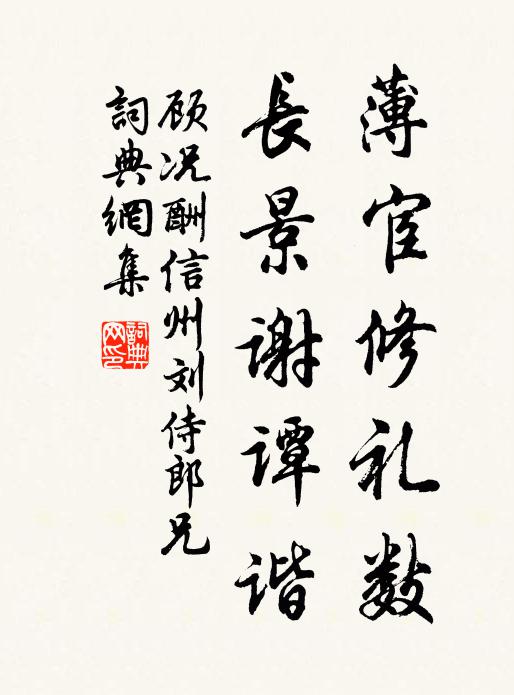 薄宦修礼数
長景謝谭谐
顾况酬信州刘侍郎兄
詞典網集
詞典网印